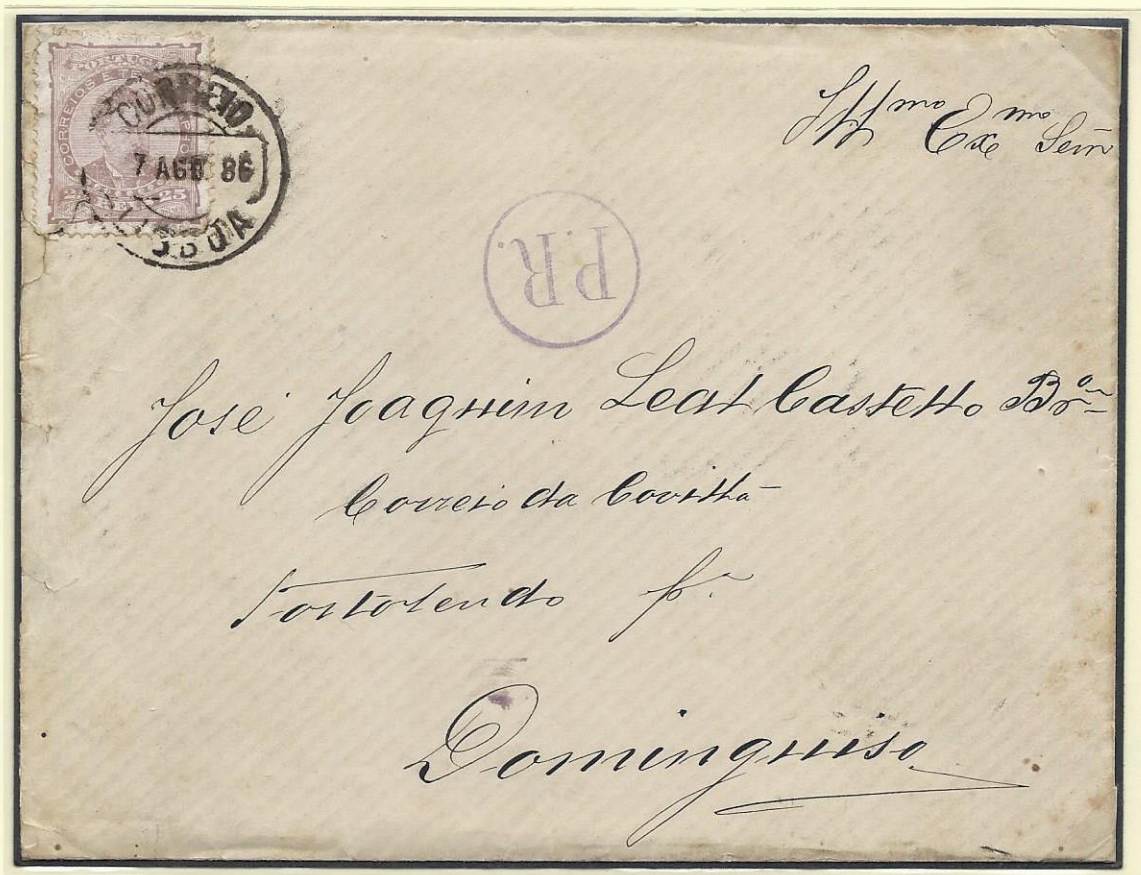 PORTUGAL
CORREIOS E
25 25
CORREIO
7 AGO 86
LISBOA
Illmo Exmo Senr
P.R.
José Joaquim Leal Castello Brco
Correio da Covilhã
Tortozendo pa
Dominguiso